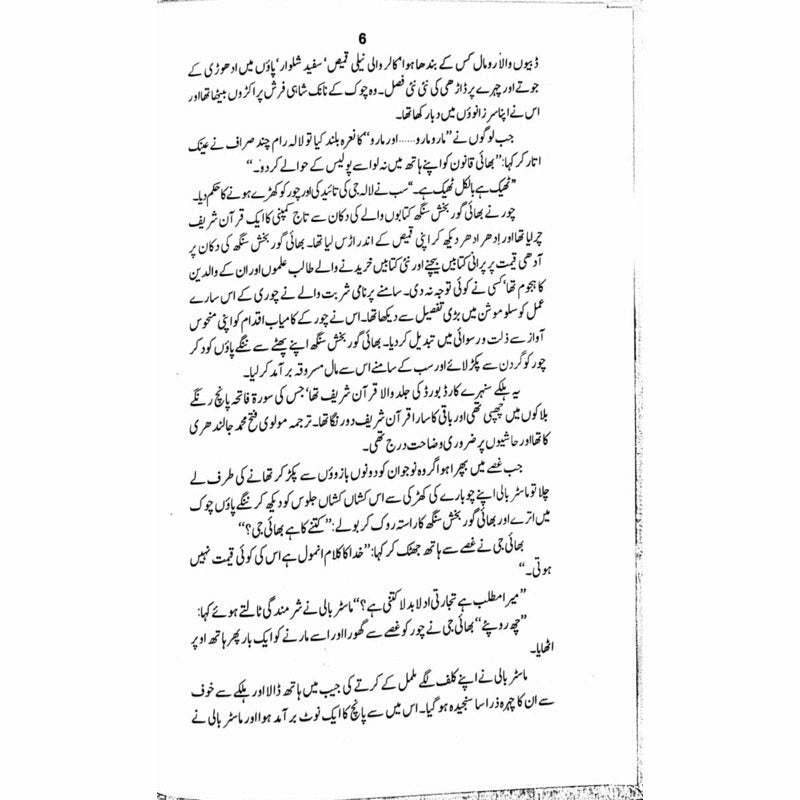 6
ڈبیوں والا رومال کس کے بندھا ہوا‘ کالر والی نیلی قمیص‘ سفید شلوار‘ پاؤں میں ادھوڑی کے
جوتے اور چہرے پر ڈاڑھی کی نئی نئی فصل۔ وہ چوک کے نانک شاہی فرش پر اکڑوں بیٹھا تھا اور
اس نے اپنا سر زانوؤں میں دبا رکھا تھا۔
جب لوگوں نے ”مارو مارو...... اور مارو“ کا نعرہ بلند کیا تو لالہ رام چند صراف نے عینک
اتار کر کہا: ”بھائی قانون کو اپنے ہاتھ میں نہ لو اسے پولیس کے حوالے کر دو۔“
”ٹھیک ہے بالکل ٹھیک ہے۔“ سب نے لالہ جی کی تائید کی اور چور کو کھڑے ہونے کا حکم دیا۔
چور نے بھائی گور بخش سنگھ کتابوں والے کی دکان سے تاج کمپنی کا ایک قرآن شریف
چرا لیا تھا اور ادھر ادھر دیکھ کر اپنی قمیص کے اندر اڑس لیا تھا۔ بھائی گور بخش سنگھ کی دکان پر
آدھی قیمت پر پرانی کتابیں بیچنے اور نئی کتابیں خریدنے والے طالب علموں اور ان کے والدین
کا ہجوم تھا‘ کسی نے کوئی توجہ نہ دی۔ سامنے پرنامی شربت والے نے چوری کے اس سارے
عمل کو سلو موشن میں بڑی تفصیل سے دیکھا تھا۔ اس نے چور کے کامیاب اقدام کو اپنی منحوس
آواز سے ذلت و رسوائی میں تبدیل کر دیا۔ بھائی گور بخش سنگھ اپنے پھٹے سے ننگے پاؤں کود کر
چور کو گردن سے پکڑ لائے اور سب کے سامنے اس سے مال مسروقہ برآمد کر لیا۔
یہ ہلکے سنہرے کارڈ بورڈ کی جلد والا قرآن شریف تھا‘ جس کی سورۃ فاتحہ پانچ رنگے
بلاکوں میں چھپی تھی اور باقی کا سارا قرآن شریف دو رنگا تھا۔ ترجمہ مولوی فتح محمد جالندھری
کا تھا اور حاشیوں پر ضروری وضاحت درج تھی۔
جب غصے میں بپھرا ہوا گروہ نوجوان کو دونوں بازوؤں سے پکڑ کر تھانے کی طرف لے
چلا تو ماسٹر بالی اپنے چوبارے کی کھڑکی سے اس کشاں کشاں جلوس کو دیکھ کر ننگے پاؤں چوک
میں اترے اور بھائی گور بخش سنگھ کا راستہ روک کر بولے: ”کتنے کا ہے بھائی جی؟“
بھائی جی نے غصے سے ہاتھ جھٹک کر کہا: ”خدا کا کلام انمول ہے اس کی کوئی قیمت نہیں
ہوتی۔“
”میرا مطلب ہے تجارتی ادلا بدلا کتنی ہے؟“ ماسٹر بالی نے شرمندگی ٹالتے ہوئے کہا:
”چھ روپئے“ بھائی جی نے چور کو غصے سے گھورا اور اسے مارنے کو ایک بار پھر ہاتھ اوپر
اٹھایا۔
ماسٹر بالی نے اپنے کلف لگے ململ کے کرتے کی جیب میں ہاتھ ڈالا اور ہلکے سے خوف
سے ان کا چہرہ ذرا سا سنجیدہ ہو گیا۔ اس میں سے پانچ کا ایک نوٹ برآمد ہوا اور ماسٹر بالی نے